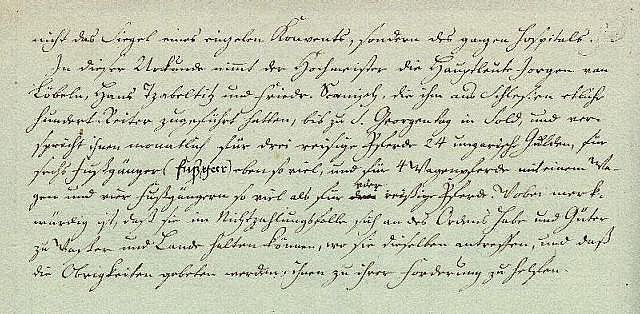 nicht das Siegel eines einzelen Konvents, sondern des ganzen Hospitals.
In dieser Urkunde nimmt der Hochmeister die Hauptleute Jorgen von
Löbeln, Hans Tzabeltitz und Friedr. die ihm aus Schlesien etliche
hundert Reiter zugeführt hatten, bis zu S. Georgentag in Sold, und ver-
spricht ihnen monatlich für drei reisige Pferde 24 ungarisch Gulden, für
sechs Fußgänger ebensoviel, und für 4 Wagenpferde mit einem Wa-
gen und vier Fußgängern so viel als für vier reisige Pferde. Dabei merk-
würdig ist, daß sie im Nichtzahlungsfalle sich an des Ordens Habe und Güter
zu Wasser und Lande halten können, wo sie dieselben antreffen, und daß
die Obrigkeiten gebeten werden, ihnen zu ihrer Forderung zu helfen.